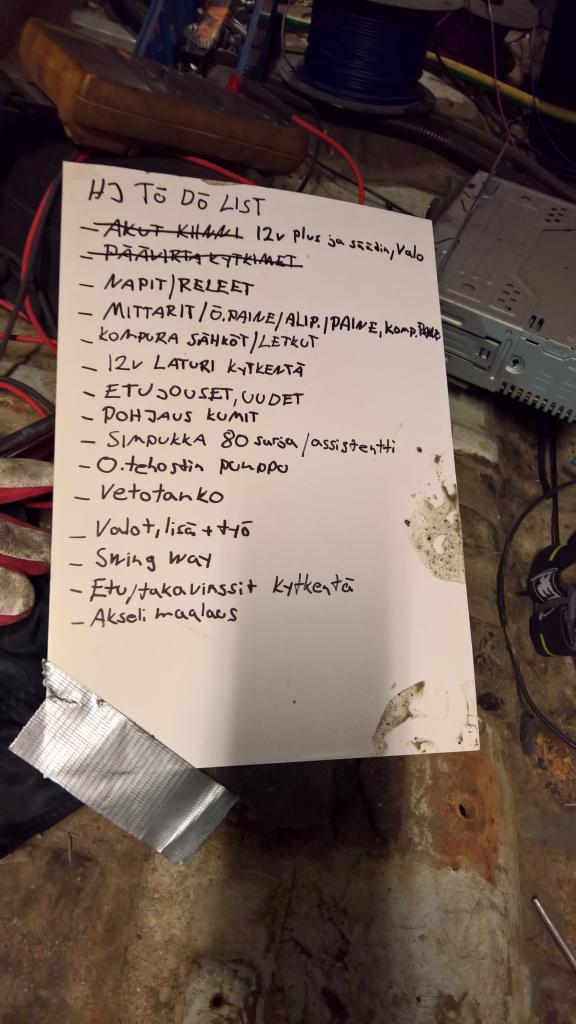 HJ TŌ DŌ LIST
- AKUT KIINNI 12v plus ja säädin, valo
- PÄÄVIRTA KYTKIMET
- NAPIT/RELEET
- MITTARIT/Ö.PAINE/ALIP./PAINE, KOMP.PAINE
- KOMPURA SÄHKÖT/LETKUT
- 12v LATURI KYTKENTÄ
- ETUJOUSET, UUDET
- POHJAUS KUMIT
- SIMPUKKA 80 sarja/assistentti
- O.tehostin pumppu
- Vetotanko
- Valot, lisä + työ
- Swing way
- Etu/takavinssit kytkentä
- Akseli maalaus